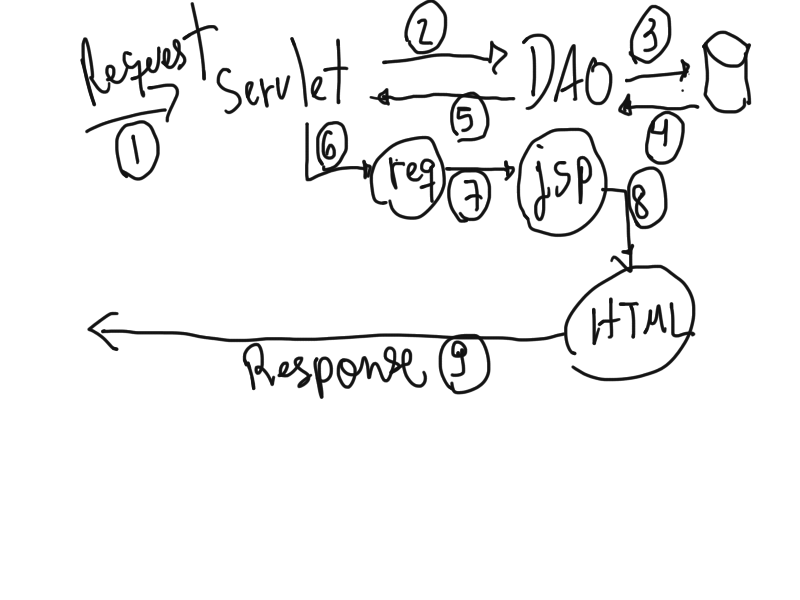 Request Servlet 2 DAO 3
1 5 4
6 req 7 jsp 8
HTML
Response 9